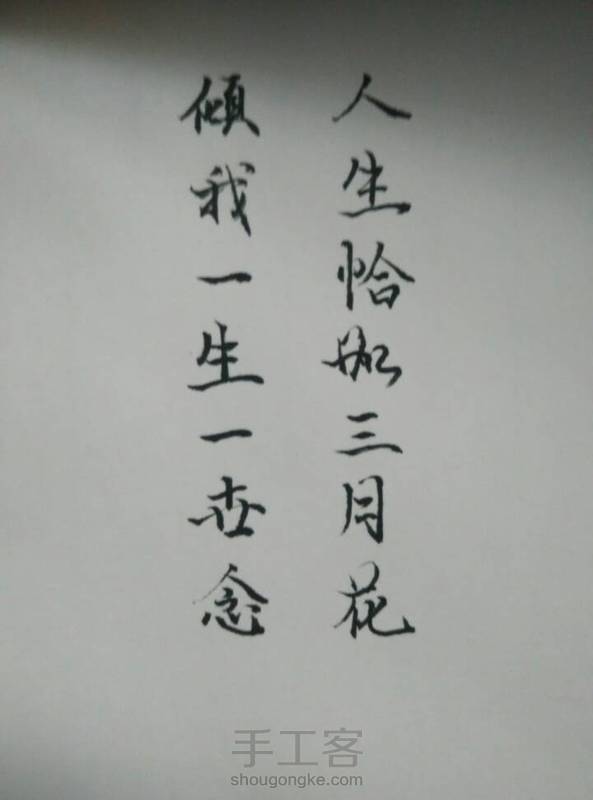 人生恰如三月花
倾我一生一世念
手工客
shougongke.com